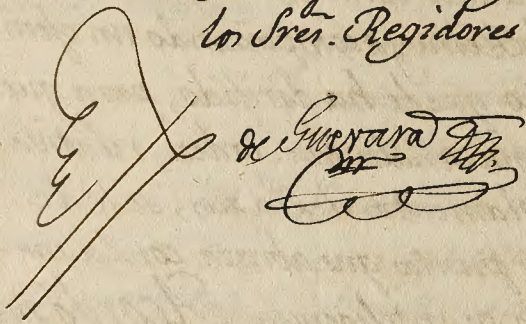 los Sres. Regidores
de Guevara